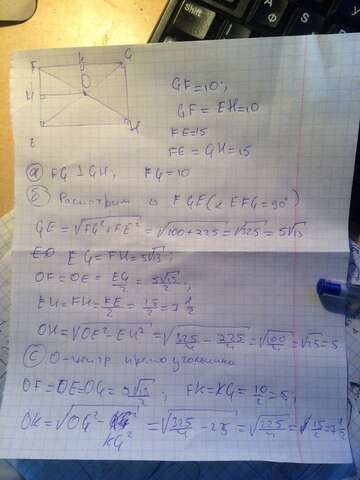 F K G
O
H
E H
GF=10;
GF=EH=10
FE=15
FE=GH=15
а) FG⊥GH, FG=10
б) Рассмотрим Δ FGE(∠EFG=90°)
GE=√FG²+FE²=√100+225=√325=5√13
EG=FH=5√13;
OF=OE=EG/2=5√13/2;
EH=FH=FE/2=15/2=7 1/2
OH=√OE²-EH²=√325/4-225/4=√100/4=√25=5
с) O-центр прямоугольника
OF=OE=OG=5√13/2; FK=KG=10/2=5;
OK=√OG²-KG²=√325/4-25=√225/4=15/2=7 1/2